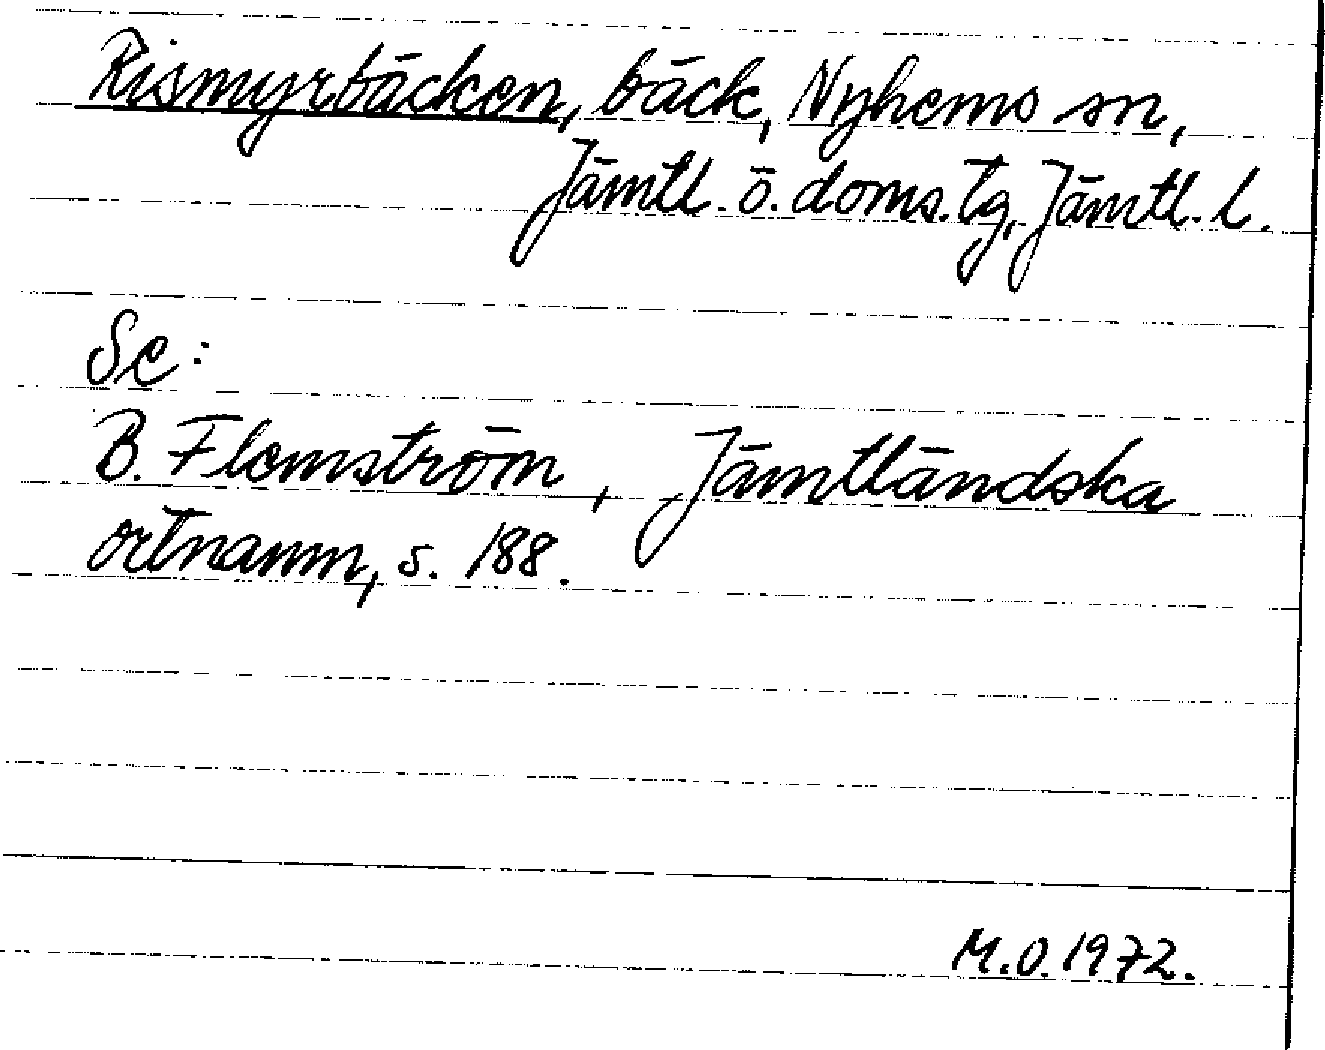 Rismyrbäcken, bäck, Nyhems sn,
Jämtl. ö. doms. tg, Jämtl. l.
Se:
B. Flemström, Jämtländska
ortnamn, s. 188.
M.O. 1972.